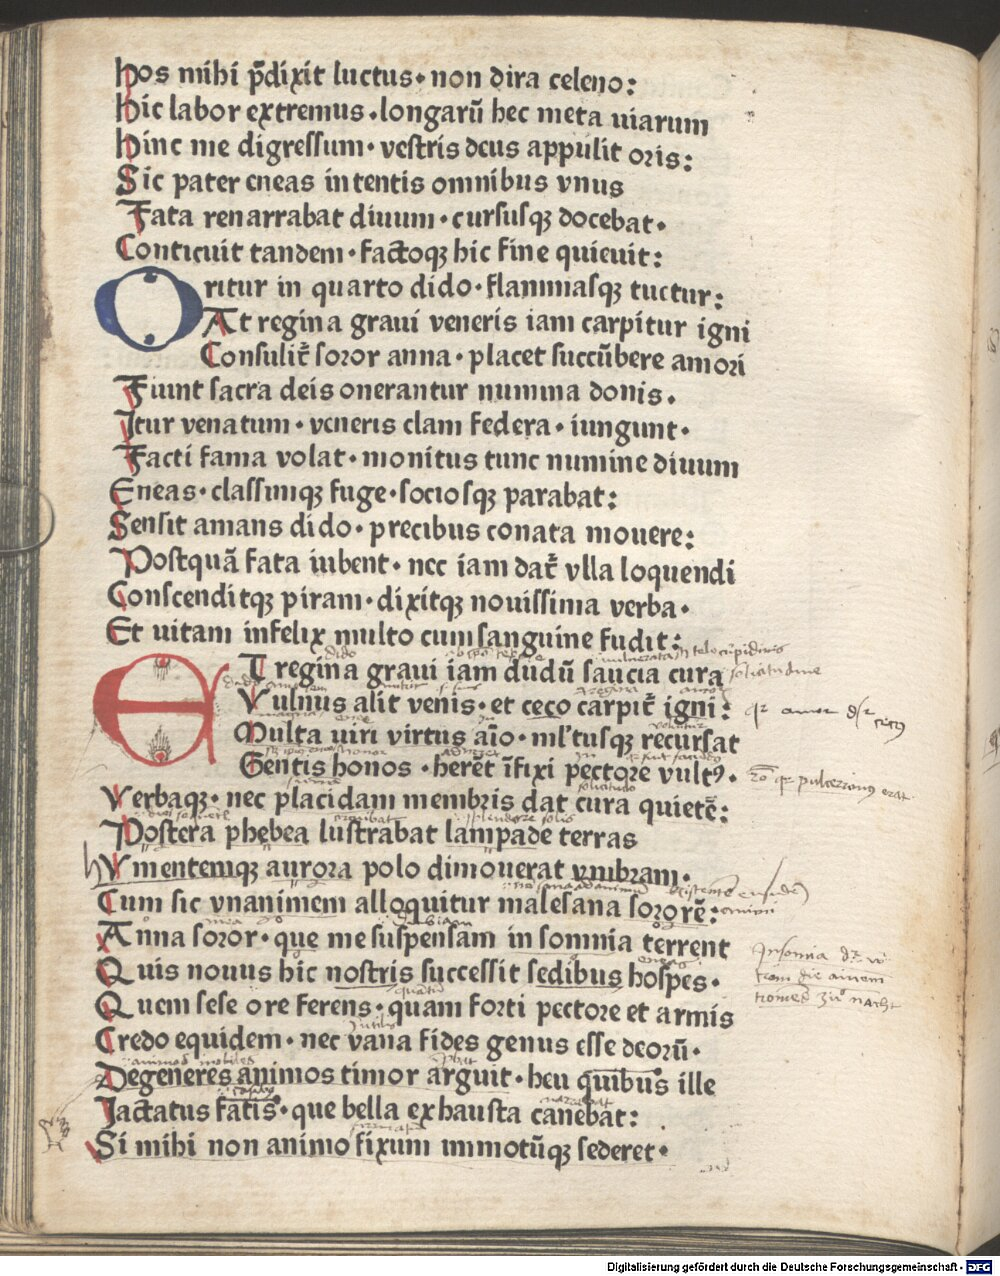 hos mihi p̄dixit luctus· non dira celeno:
hic labor extremus ·longarū hec meta uiarum
hinc me digressum· vestris deus appulit oris:
Sic pater eneas intentis omnibus vnus
Fata renarrabat diuum· cursusqꝫ docebat·
Conticuit tandem· factoqꝫ hic fine quieuit:
Oritur in quarto dido· flammasqꝫ tuetur:
At regina graui veneris iam carpitur igni
Consulit᷑ soror anna· placet succūbere amori
Fiunt sacra deis onerantur numina donis·
Itur venatum· veneris clam federa· iungunt·
Facti fama volat· monitus tunc numine diuum
Eneas· classimqꝫ fuge· sociosqꝫ parabat:
Sensit amans dido· precibus conata mouere:
Postquā fata iubent· nec iam dat᷑ vlla loquendi
Conscenditqꝫ piram· dixitqꝫ nouissima verba·
Et uitam infelix multo cum sanguine fudit:
dido
ET regina graui iam dudū saucia cura solicitudine
Vulnus alit venis· et ceco carpit᷑ igni:
Multa uiri virtus aīo· ml'tusqꝫ recursat
Gentis honos· herēt īfixi pectore vultꝰ·
solicitudo
Verbaqꝫ· nec placidam membris dat cura quietē:
splendore solis
Postera phębea lustrabat lampade terras
hVmentemqꝫ aurora polo dimouerat vmbram·
Cum sic vnanimem alloquitur malesana sororē:
dubiam
Anna soror· que me suspensam in somnia terrent
eneas
Quis nouus hic nostris successit sedibus hospes·
Quem sese ore ferens· quam forti pectore et armis
Credo equidem· nec vana fides genus esse deorū·
Degeneres animos timor arguit· heu quibus ille
Iactatus fatis· que bella exhausta canebat:
Si mihi non animo fixum immotūqꝫ sederet·
Digitalisierung gefördert durch die Deutsche Forschungsgemeinschaft - DFG